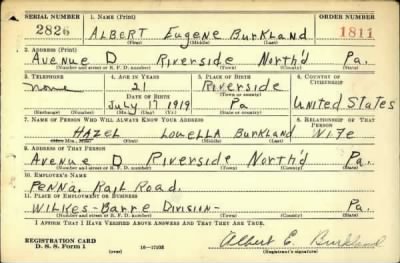 SERIAL NUMBER 1. NAME (Print) ORDER NUMBER
2826 ALBERT Eugene BurKland 1811
(First) (Middle) (Last)
2. ADDRESS (Print)
Avenue D Riverside North'd Pa.
(Number and street or R. F. D. number) (Town) (County) (State)
3. TELEPHONE 4. AGE IN YEARS 5. PLACE OF BIRTH 6. COUNTRY OF CITIZENSHIP
none 21 Riverside
DATE OF BIRTH (Town or county)
July 17 1919 Pa United States
(Exchange) (Number) (Mo.) (Day) (Yr.) (State or country)
7. NAME OF PERSON WHO WILL ALWAYS KNOW YOUR ADDRESS 8. RELATIONSHIP OF THAT PERSON
HAZEL Louella Burkland Wife
(First) (Middle) (Last)
9. ADDRESS OF THAT PERSON
Avenue D Riverside North'd Pa.
(Number and street or R. F. D. number) (Town) (County) (State)
10. EMPLOYER'S NAME
PENNA. Rail Road.
11. PLACE OF EMPLOYMENT OR BUSINESS
WILKES-Barre Division- Pa.
(Number and street or R. F. D. number) (Town) (County) (State)
I AFFIRM THAT I HAVE VERIFIED ABOVE ANSWERS AND THAT THEY ARE TRUE.
Albert E. Burkland
REGISTRATION CARD
D. S. S. Form 1 (over) 16—17105 (Registrant's signature)